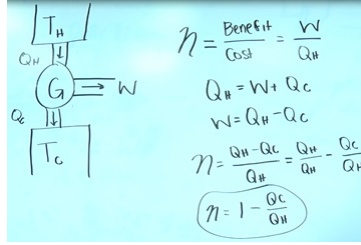 T_H
Q_H
G → W
Q_C
T_C
η = Benefit/Cost = W/Q_H
Q_H = W + Q_C
W = Q_H - Q_C
η = (Q_H - Q_C)/Q_H = Q_H/Q_H - Q_C/Q_H
η = 1 - Q_C/Q_H